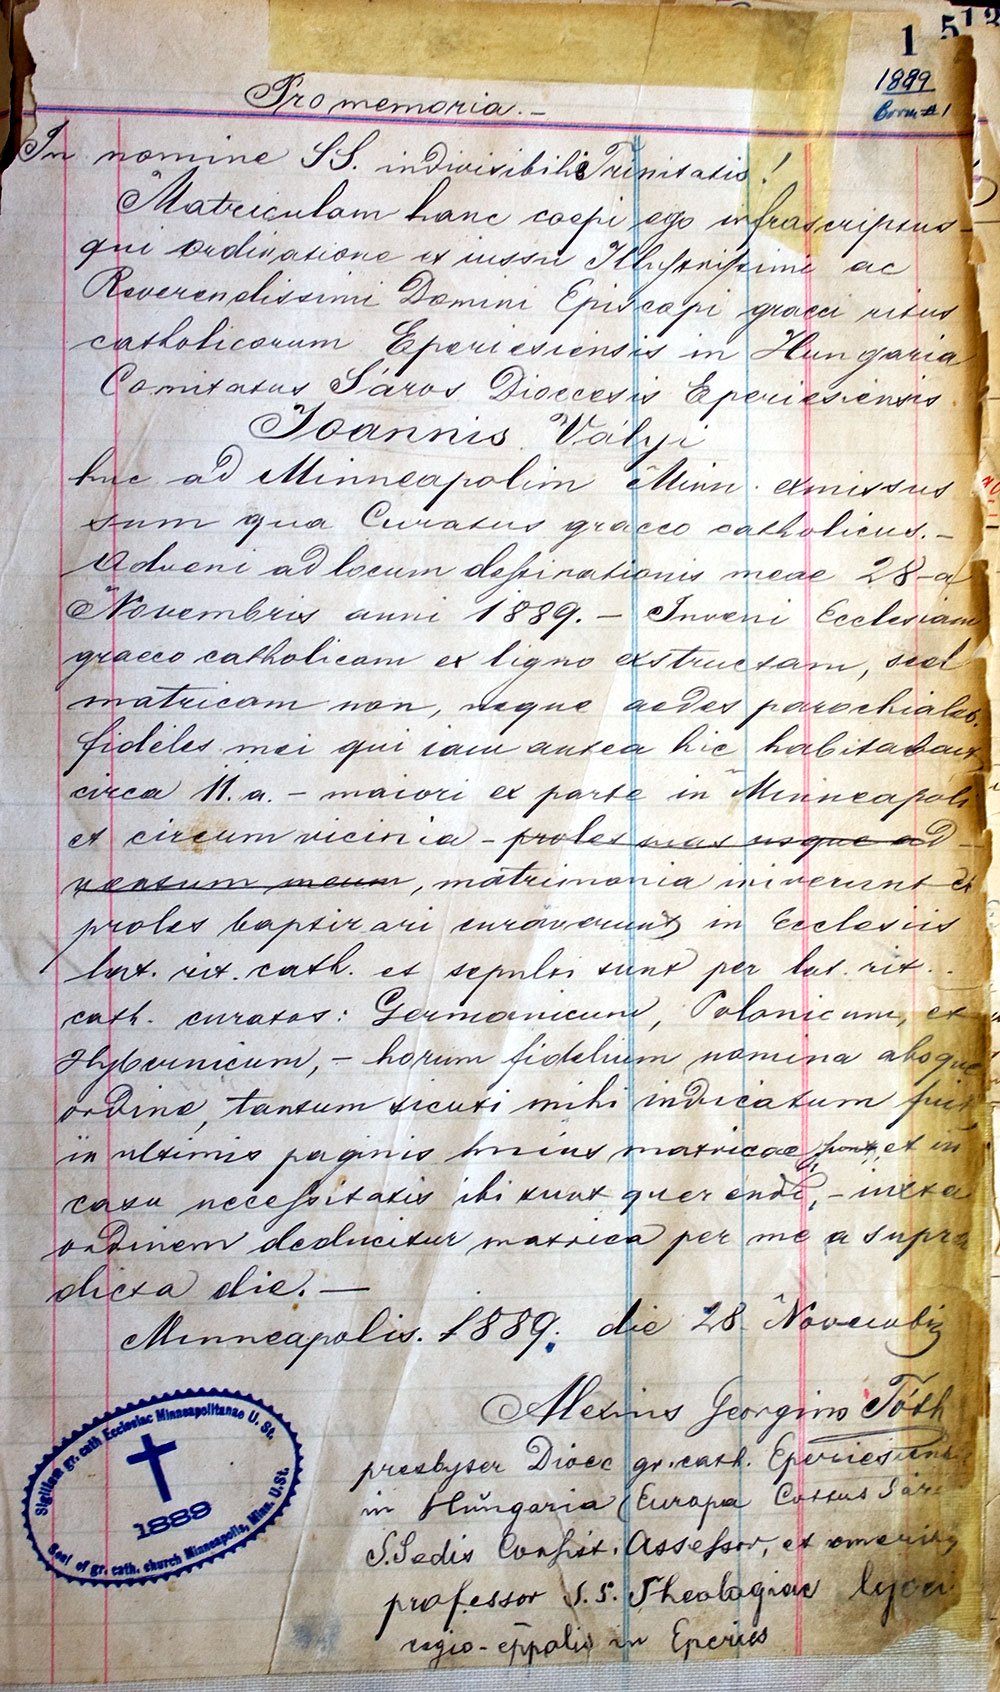 1 512
1889
Born #1
Pro memoria. –
In nomine SS. indivisibilis Trinitatis!
Matriculam hanc coepi ego infrascriptus
qui ordinatione et iussu Illustrissimi ac
Reverendissimi Domini Episcopi graeci ritus
catholicorum Eperiesiensis in Hungaria
Comitatus Sáros Dioecesis Eperiesiensis
Joannis Vályi
huc ad Minneapolim Minn. emissus
sum qua Curatus graeco catholicus. –
Adveni ad locum destinationis meae 28-a
Novembris anni 1889. – Inveni Ecclesiam
graeco catholicam ex ligno exstructam, sed
matricam non, neque aedes parochiales.
fideles mei qui iam antea hic habitabant,
circa 11. a. – maiori ex parte in Minneapoli
et circumvicinia – proles suas usque ad –
ventum meum, matrimonia iniverunt et
proles baptizari curaverunt in Ecclesiis
lat. rit. cath. et sepulti sunt per lat. rit.
cath. curatos: Germanicum, Polonicum, et
Hybernicum, – horum fidelium nomina absque
ordine, tantum sicuti mihi indicatum fuit
in ultimis paginis huius matricae sunt, et in
casu necessitatis ibi sunt querendi, – iuxta
ordinem deducitur matrica per me a supra
dicta die. —
Minneapolis. 1889. die 28 Novembris
Alexius Georgius Tóth
presbyter Dioec gr. cath. Eperiesiensis
in Hungaria (Europa Cottus Sáros
S. Sedis Consist. Assessor, et emeritus
professor S. S. Theologiae lycei
regio-eppalis in Eperies
Sigillum gr. cath Ecclesiae Minneapolitanae U. St.
1889
Seal of gr. cath. church Minneapolis, Minn. U.St.